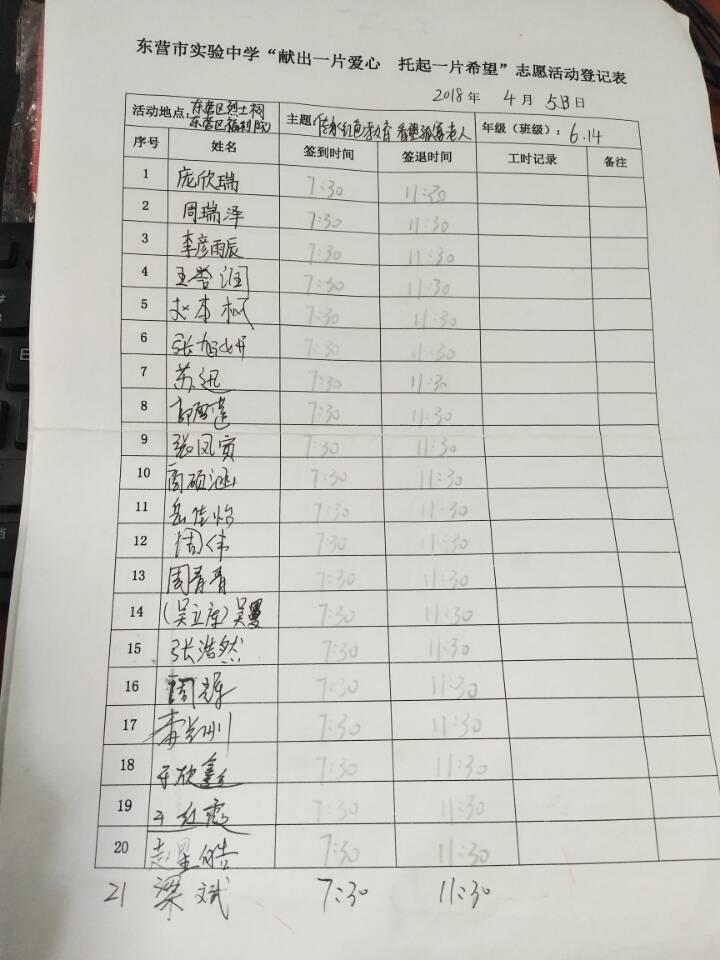 东营市实验中学“献出一片爱心 托起一片希望”志愿活动登记表
2018年 4月 5日日
活动地点:东营区烈士祠 东营区福利院 主题: 传承红色教育 看望孤寡老人 年级(班级): 6.14
序号 姓名 签到时间 签退时间 工时记录 备注
1 庞欣瑞 7:30 11:30
2 周瑞泽 7:30 11:30
3 李彦雨辰 7:30 11:30
4 王誉润 7:30 11:30
5 赵本枫 7:30 11:30
6 张旭妍 7:30 11:30
7 苏迅 7:30 11:30
8 7:30 11:30
9 张凤寅 7:30 11:30
10 商硕涵 7:30 11:30
11 岳佳怡 7:30 11:30
12 周伟 7:30 11:30
13 周青青 7:30 11:30
14 (吴立厚)吴曼 7:30 11:30
15 张浩然 7:30 11:30
16 周 7:30 11:30
17 7:30 11:30
18 于欣鑫 7:30 11:30
19 于红霞 7:30 11:30
20 星皓 7:30 11:30
21 梁斌 7:30 11:30